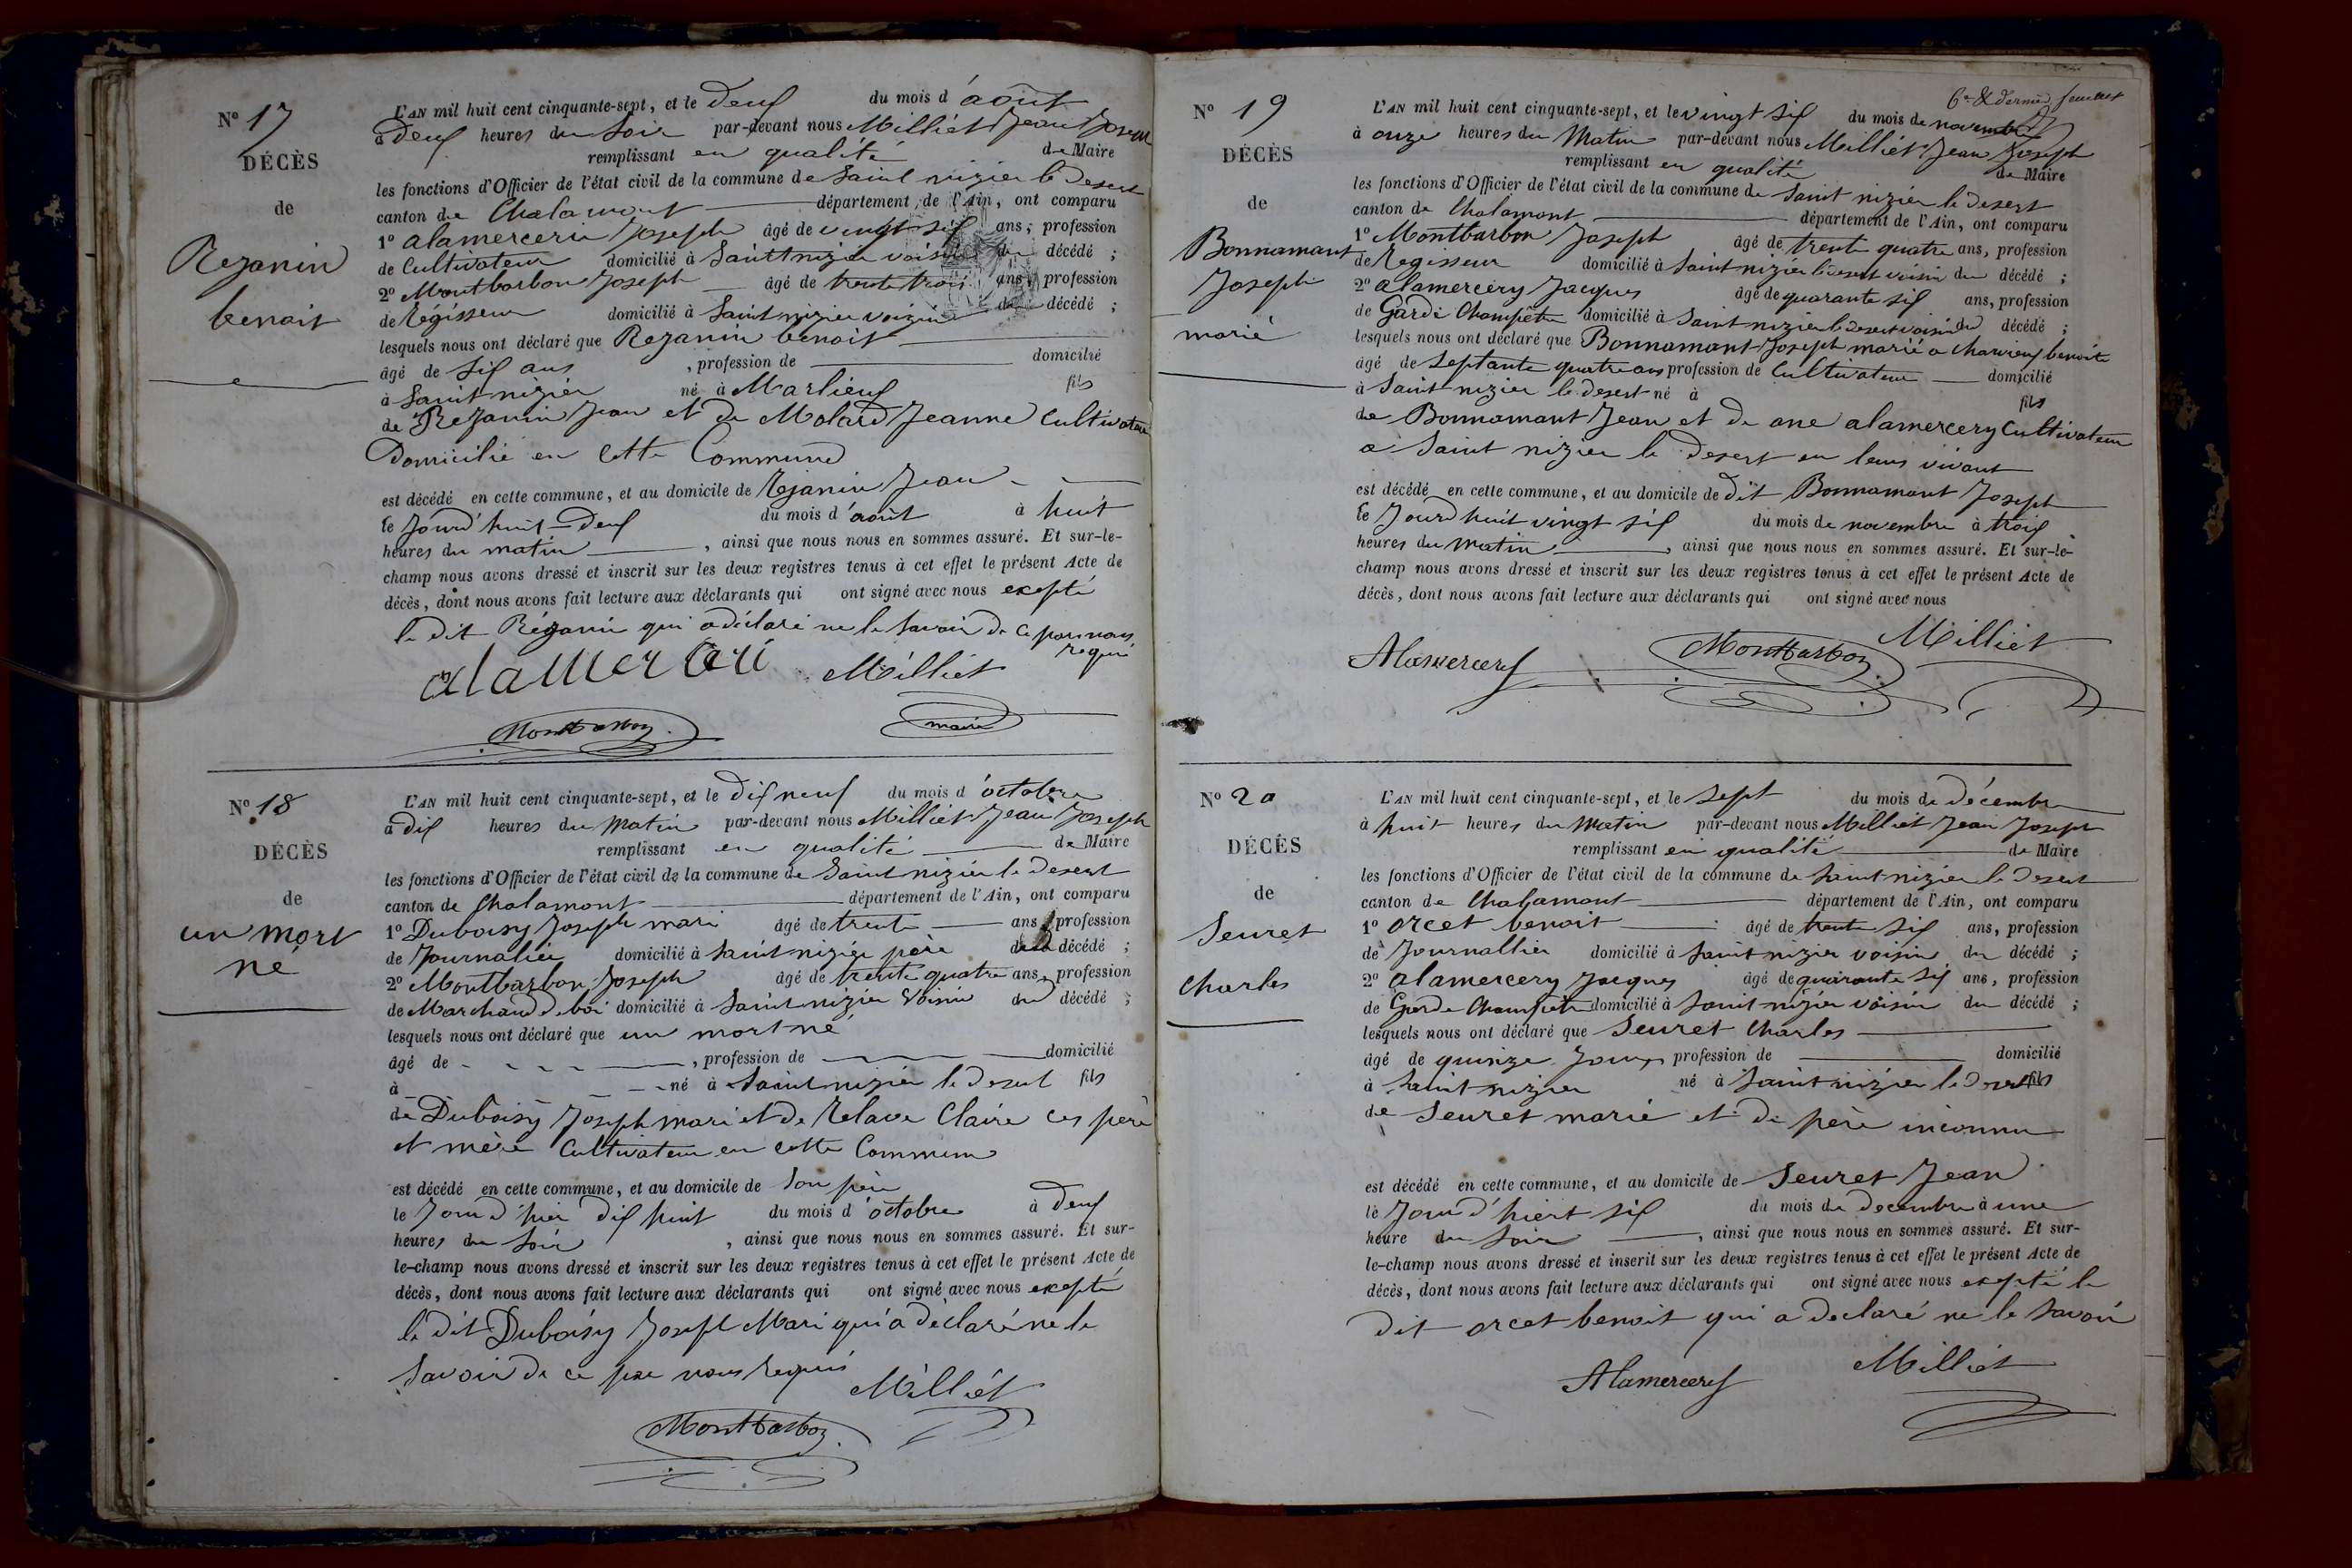 Nº 17
DÉCÈS
de
Rejanin
benoit
L'AN mil huit cent cinquante-sept, et le deux du mois d'août
à deux heures du soir par-devant nous Milliet Jean Joseph
remplissant en qualité de Maire
les fonctions d'Officier de l'état civil de la commune de Saint nizier le Desert
canton de Chalamont département de l'Ain, ont comparu
1º alamercerie Joseph âgé de vingt six ans; profession
de Cultivateur domicilié à Saint nizier voisin du décédé ;
2º Montbarbon Joseph âgé de trente trois ans, profession
de régisseur domicilié à Saint nizier voisin du décédé ;
lesquels nous ont déclaré que Rejanin benoit
âgé de six ans , profession de domicilié
à Saint nizier né à Marlieux fils
de Rejanin Jean et de Molard Jeanne Cultivateur
Domicilié en Cette Commune
est décédé en cette commune, et au domicile de Rejanin Jean
le Jourd'huit deux du mois d'août à huit
heures du matin , ainsi que nous nous en sommes assuré. Et sur-le-
champ nous avons dressé et inscrit sur les deux registres tenus à cet effet le présent Acte de
décès, dont nous avons fait lecture aux déclarants qui ont signé avec nous excepté
le dit Réganin qui a déclaré ne le Savoir de ce par nous
requi
alamerceri Milliet
Montbarbon maire
Nº 18
DÉCÈS
de
un mort
né
L'AN mil huit cent cinquante-sept, et le dix neuf du mois d'octobre
à dix heures du Matin par-devant nous Milliet Jean Joseph
remplissant en qualité de Maire
les fonctions d'Officier de l'état civil de la commune de Saint nizier le Desert
canton de Chalamont département de l'Ain, ont comparu
1º Duboisy Joseph mari âgé de trente ans, profession
de Journalier domicilié à Saint nizier père du décédé ;
2º Montbarbon Joseph âgé de trente quatre ans, profession
de Marchand de boi domicilié à Saint nizier Voisin du décédé ;
lesquels nous ont déclaré que un mort né
âgé de , profession de domicilié
à né à Saint nizier le Desert fils
de Duboisy Joseph mari et de Relave Claire ces père
et mère Cultivateur en cette Commune
est décédé en cette commune, et au domicile de Son père
le Jour d'hier dix huit du mois d'octobre à deux
heures du Soir , ainsi que nous nous en sommes assuré. Et sur-
le-champ nous avons dressé et inscrit sur les deux registres tenus à cet effet le présent Acte de
décès, dont nous avons fait lecture aux déclarants qui ont signé avec nous excepté
le dit Duboisy Joseph Mari qui a déclaré ne le
Savoir de ce par nous requis
Milliet
Montbarbon
6e & dernier feuillet
Nº 19
DÉCÈS
de
Bonnamant
Joseph
marié
L'AN mil huit cent cinquante-sept, et le vingt six du mois de novembre
à onze heures du Matin par-devant nous Milliet Jean Joseph
remplissant en qualité de Maire
les fonctions d'Officier de l'état civil de la commune de Saint nizier le Desert
canton de Chalamont département de l'Ain, ont comparu
1º Montbarbon Joseph âgé de trente quatre ans, profession
de Regisseur domicilié à Saint nizier le desert voisin du décédé ;
2º alamercery Jacques âgé de quarante six ans, profession
de Garde Champêtre domicilié à Saint nizier le Desert voisin du décédé ;
lesquels nous ont déclaré que Bonnamant Joseph marié a Charvieux benoite
âgé de Septante quatre ans profession de Cultivateur domicilié
à Saint nizier le desert né à fils
de Bonnamant Jean et de ane alamercery Cultivateur
a Saint nizier le Desert en leur vivant
est décédé en cette commune, et au domicile de dit Bonnamant Joseph
le Jourd huit vingt six du mois de novembre à trois
heures du Matin , ainsi que nous nous en sommes assuré. Et sur-le-
champ nous avons dressé et inscrit sur les deux registres tenus à cet effet le présent Acte de
décès, dont nous avons fait lecture aux déclarants qui ont signé avec nous
Milliet
Alamercery Montbarbon
Nº 20
DÉCÈS
de
Seuret
Charles
L'AN mil huit cent cinquante-sept, et le Sept du mois de décembre
à huit heures du Matin par-devant nous Milliet Jean Joseph
remplissant en qualité de Maire
les fonctions d'Officier de l'état civil de la commune de Saint nizier le Desert
canton de Chalamont département de l'Ain, ont comparu
1º orcet benoit âgé de trente six ans, profession
de Journallier domicilié à Saint nizier voisin du décédé ;
2º alamercery Jacques âgé de quarante six ans, profession
de Garde Champêtre domicilié à Saint nizier voisin du décédé ;
lesquels nous ont déclaré que Seuret Charles
âgé de quinze Jours profession de domicilié
à Saint nizier né à Saint nizier le Desert fils
de Seuret marié et de père inconnu
est décédé en cette commune, et au domicile de Seuret Jean
le Jour d'hiert six du mois de decembre à une
heure du Soir , ainsi que nous nous en sommes assuré. Et sur-
le-champ nous avons dressé et inscrit sur les deux registres tenus à cet effet le présent Acte de
décès, dont nous avons fait lecture aux déclarants qui ont signé avec nous excepté le
dit orcet benoit qui a declaré ne le Savoir
Alamercery Milliet